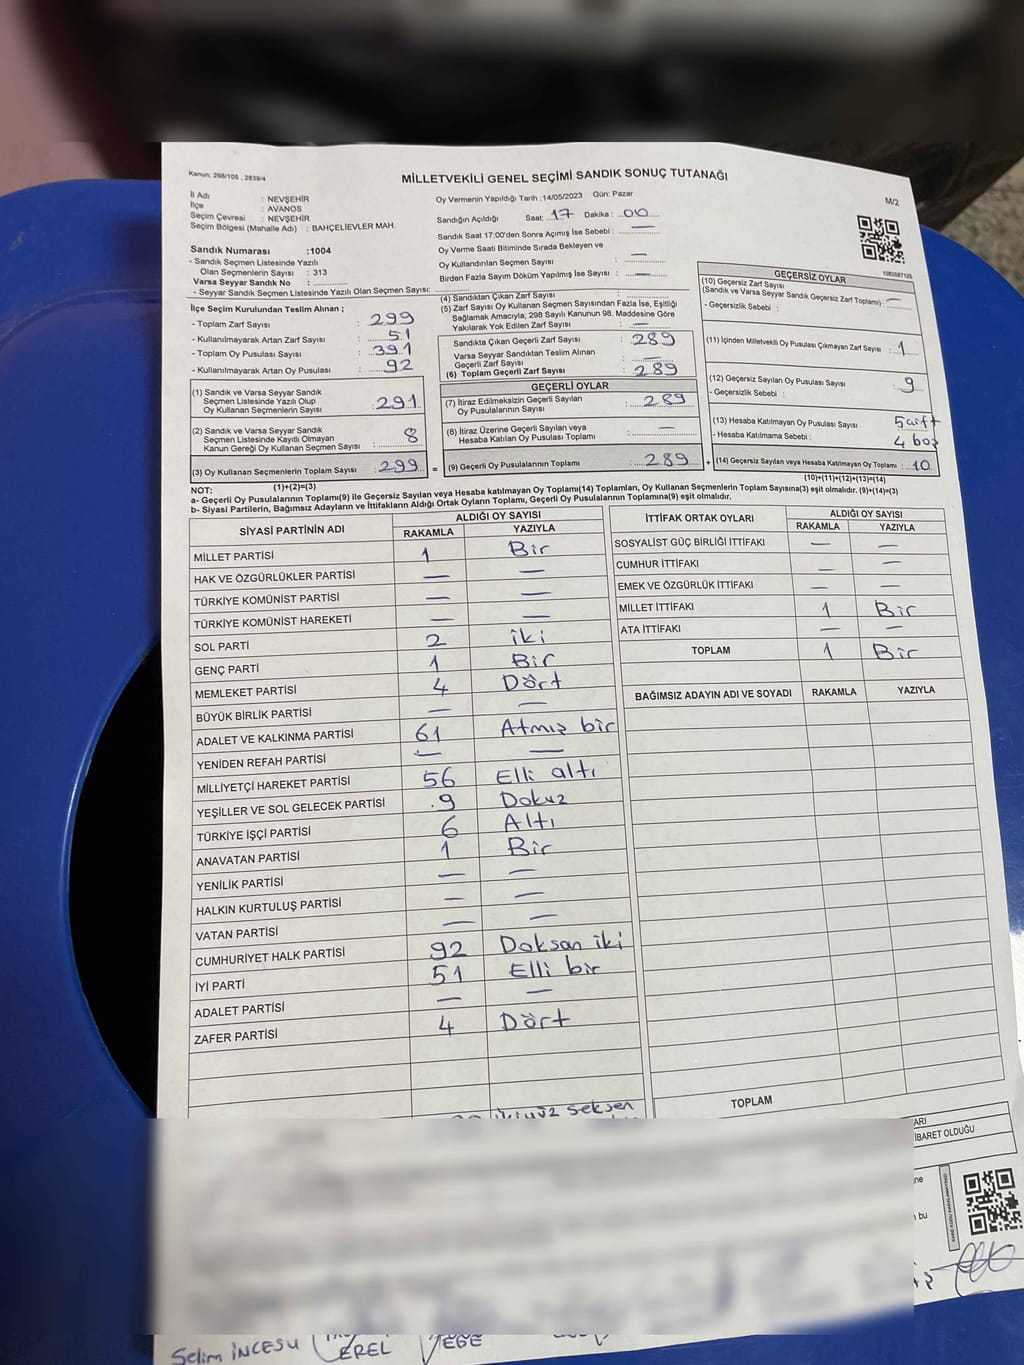 Kanun: 298/105 , 2839/4
MİLLETVEKİLİ GENEL SEÇİMİ SANDIK SONUÇ TUTANAĞI
M/2
İl Adı : NEVŞEHİR
İlçe : AVANOS
Seçim Çevresi : NEVŞEHİR
Seçim Bölgesi (Mahalle Adı) : BAHÇELİEVLER MAH.
Sandık Numarası :1004
- Sandık Seçmen Listesinde Yazılı
Olan Seçmenlerin Sayısı : 313
Varsa Seyyar Sandık No :
- Seyyar Sandık Seçmen Listesinde Yazılı Olan Seçmen Sayısı:
Oy Vermenin Yapıldığı Tarih :14/05/2023 Gün: Pazar
Sandığın Açıldığı Saat: 17 Dakika : 00
Sandık Saat 17:00'den Sonra Açılmış İse Sebebi : —
Oy Verme Saati Bitiminde Sırada Bekleyen ve
Oy Kullandırılan Seçmen Sayısı : —
Birden Fazla Sayım Döküm Yapılmış İse Sayısı : —
İlçe Seçim Kurulundan Teslim Alınan ;
- Toplam Zarf Sayısı : 299
- Kullanılmayarak Artan Zarf Sayısı : 51
- Toplam Oy Pusulası Sayısı : 391
- Kullanılmayarak Artan Oy Pusulası : 92
(1) Sandık ve Varsa Seyyar Sandık
Seçmen Listesinde Yazılı Olup
Oy Kullanan Seçmenlerin Sayısı : 291
(2) Sandık ve Varsa Seyyar Sandık
Seçmen Listesinde Kayıtlı Olmayan
Kanun Gereği Oy Kullanan Seçmen Sayısı : 8
(3) Oy Kullanan Seçmenlerin Toplam Sayısı : 299
(1)+(2)=(3)
(4) Sandıktan Çıkan Zarf Sayısı :
(5) Zarf Sayısı Oy Kullanan Seçmen Sayısından Fazla İse, Eşitliği
Sağlamak Amacıyla; 298 Sayılı Kanunun 98. Maddesine Göre
Yakılarak Yok Edilen Zarf Sayısı : —
Sandıkta Çıkan Geçerli Zarf Sayısı : 289
Varsa Seyyar Sandıktan Teslim Alınan
Geçerli Zarf Sayısı : —
(6) Toplam Geçerli Zarf Sayısı : 289
GEÇERLİ OYLAR
(7) İtiraz Edilmeksizin Geçerli Sayılan
Oy Pusulalarının Sayısı : 289
(8) İtiraz Üzerine Geçerli Sayılan veya
Hesaba Katılan Oy Pusulası Toplamı : —
= (9) Geçerli Oy Pusulalarının Toplamı : 289 +
1083587125
GEÇERSİZ OYLAR
(10) Geçersiz Zarf Sayısı
(Sandık ve Varsa Seyyar Sandık Geçersiz Zarf Toplamı) : —
- Geçersizlik Sebebi :
(11) İçinden Milletvekili Oy Pusulası Çıkmayan Zarf Sayısı : 1
(12) Geçersiz Sayılan Oy Pusulası Sayısı : 9
- Geçersizlik Sebebi :
(13) Hesaba Katılmayan Oy Pusulası Sayısı 5 çift
- Hesaba Katılmama Sebebi : 4 boş
(14) Geçersiz Sayılan veya Hesaba Katılmayan Oy Toplamı : 10
(10)+(11)+(12)+(13)=(14)
NOT:
a- Geçerli Oy Pusulalarının Toplamı(9) ile Geçersiz Sayılan veya Hesaba katılmayan Oy Toplamı(14) Toplamları, Oy Kullanan Seçmenlerin Toplam Sayısına(3) eşit olmalıdır. (9)+(14)=(3)
b- Siyasi Partilerin, Bağımsız Adayların ve İttifakların Aldığı Ortak Oyların Toplamı, Geçerli Oy Pusulalarının Toplamına(9) eşit olmalıdır.
SİYASİ PARTİNİN ADI ALDIĞI OY SAYISI
RAKAMLA YAZIYLA
MİLLET PARTİSİ 1 Bir
HAK VE ÖZGÜRLÜKLER PARTİSİ — —
TÜRKİYE KOMÜNİST PARTİSİ — —
TÜRKİYE KOMÜNİST HAREKETİ — —
SOL PARTİ 2 iki
GENÇ PARTİ 1 Bir
MEMLEKET PARTİSİ 4 Dört
BÜYÜK BİRLİK PARTİSİ — —
ADALET VE KALKINMA PARTİSİ 61 Atmış bir
YENİDEN REFAH PARTİSİ — —
MİLLİYETÇİ HAREKET PARTİSİ 56 Elli altı
YEŞİLLER VE SOL GELECEK PARTİSİ 9 Dokuz
TÜRKİYE İŞÇİ PARTİSİ 6 Altı
ANAVATAN PARTİSİ 1 Bir
YENİLİK PARTİSİ — —
HALKIN KURTULUŞ PARTİSİ — —
VATAN PARTİSİ — —
CUMHURİYET HALK PARTİSİ 92 Doksan iki
İYİ PARTİ 51 Elli bir
ADALET PARTİSİ — —
ZAFER PARTİSİ 4 Dört
ikiyüz seksen
İTTİFAK ORTAK OYLARI ALDIĞI OY SAYISI
RAKAMLA YAZIYLA
SOSYALİST GÜÇ BİRLİĞİ İTTİFAKI — —
CUMHUR İTTİFAKI — —
EMEK VE ÖZGÜRLÜK İTTİFAKI — —
MİLLET İTTİFAKI 1 Bir
ATA İTTİFAKI — —
TOPLAM 1 Bir
BAĞIMSIZ ADAYIN ADI VE SOYADI RAKAMLA YAZIYLA
TOPLAM
ARI
İBARET OLDUĞU
ne
bu
Selim İNCESU EREL EGE